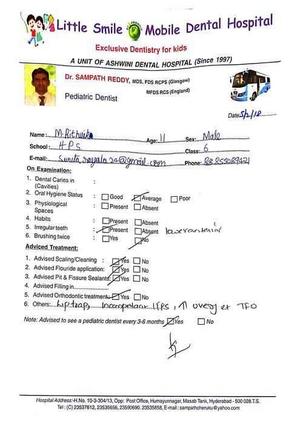 Little Smile Mobile Dental Hospital
Exclusive Dentistry for kids
A UNIT OF ASHWINI DENTAL HOSPITAL (Since 1997)
Dr. SAMPATH REDDY, MDS, FDS RCPS (Glasgow)
MFDS RCS (England)
Pediatric Dentist
Date: 5/2/18
Name: M. Rithvik Age: 11 Sex: Male
School: HPS Class: 6
E-mail: Phone:
On Examination:
1. Dental Caries in :
(Cavities)
2. Oral Hygiene Status : Good Average Poor
3. Physiological : Present Absent
Spaces
4. Habits : Present Absent
5. Irregular teeth : Present Absent
6. Brushing twice : Yes No
Adviced Treatment:
1. Advised Scaling/Cleaning : Yes No
2. Advised Flouride application: Yes No
3. Advised Pit & Fissure Sealants: Yes No
4. Advised Filling in
5. Advised Orthodontic treatment: Yes No
6. Others: Lip trap, Incompetent lips,
Note: Advised to see a pediatric dentist every 3-6 months Yes No
Hospital Address: H.No. 10-3-304/13, Opp: Post Office, Humayunnagar, Masab Tank, Hyderabad - 500 028 T.S.
Tel: (C) 23537612, 23535656, 23590690, 23535858, E-mail : sampathcheruku@yahoo.com